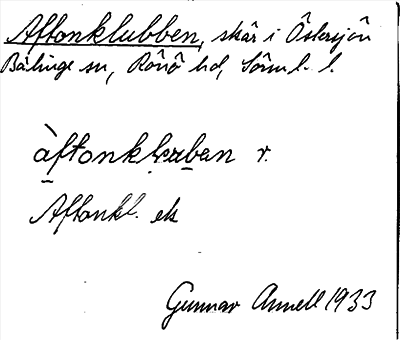 Aftonklubben, skär i Östersjön
Bälinge sn, Rönö hd, Sörml. l.
àftonklubən r.
Aftonkl. ek
Gunnar Annell 1933